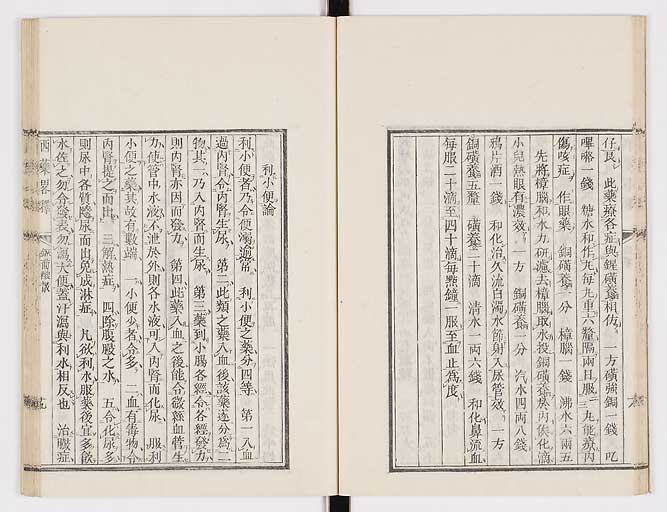 仔良 此藥療各症與鋅磺養相仿 一方磺強銅一錢 叱
嗶嚕一錢 糖水和作九每九重六釐隔兩日服一九能療內
傷咳症 作眼藥 銅磺養二分 樟腦一錢 沸水六兩五
先將樟腦和水力研濾去樟腦取水投銅磺養於內俟化滴
小兒熱眼有濃效 一方 銅磺養一分 汽水四兩八錢
鴉片酒一錢 和化治久流白濁水節射入尿管效 一方
銅磺養五釐 磺養二十滴 清水一兩六錢 和化鼻流血
每服二十滴至四十滴每點鐘一服至血止為度
利小便論
利小便者乃令便溺逾常 利小便之藥分四等 第一入血
過內腎令內腎生尿 第二此類之藥入血後該藥遂分為二
物其一乃入內腎而生尿 第三藥到小腸各經令各經發力
則內腎亦因而發力 第四此藥入血之後能令微絲血管生
力使管中水液不泄於外則各水液可入內腎而化尿 服利
小便之藥其故有數端 一小便少者令多 二血有毒物令
內腎提之而出 三解熱症 四除臌脹之水 五令化尿多
則尿中各質隨尿而出免成淋症 凡欲利水服藥後宜多飲
水佐之勿令發表勿瀉大便蓋汗瀉與利水相反也 治臌症
西藥畧釋